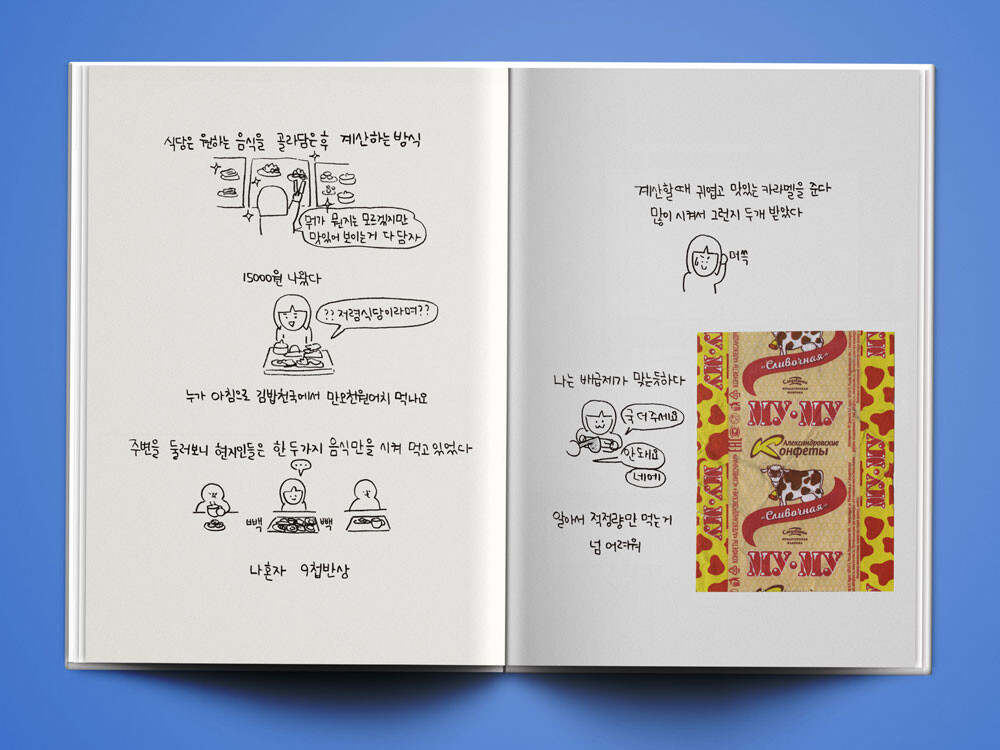 식당은 원하는 음식을 골라담은 후 계산하는 방식
뭐가 뭔지는 모르겠지만
맛있어 보이는거 다 담자
15000원 나왔다
?? 저렴식당이라며??
누가 아침으로 김밥천국에서 만오천원어치 먹나요
주변을 둘러보니 현지인들은 한 두가지 음식만을 시켜 먹고 있었다
...
빽빽
빽
나혼자 9첩반상
계산할때 귀엽고 맛있는 카라멜을 준다
많이 시켜서 그런지 두개 받았다
머쓱
나는 배급제가 맞는듯하다
국 더주세요
안돼요
네에
알아서 적정량만 먹는거
넘 어려워
Сливочная
МУ-МУ
Александровские
Конфеты
Сливочная
МУ-МУ
Конфеты
МУ-МУ
МУ-МУ
МУ-МУ